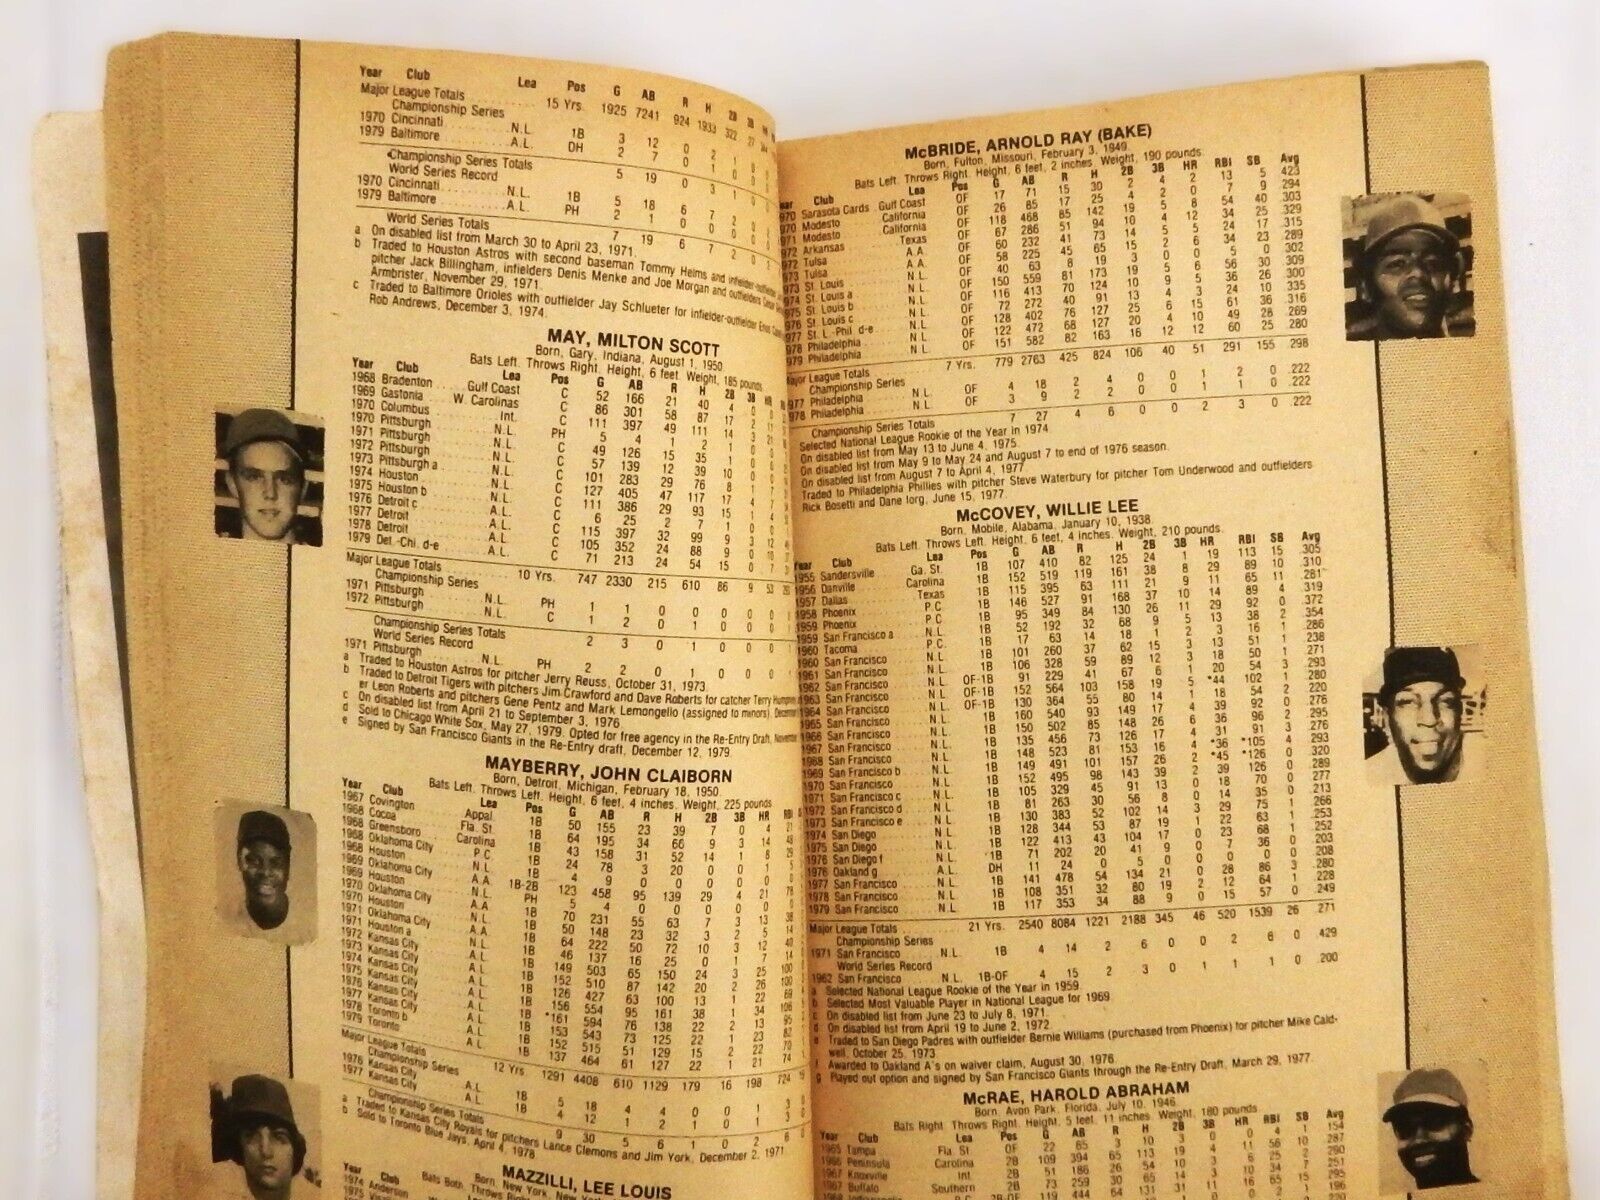 Year Club Lea Pos G AB R H 2B 3B HR
Major League Totals 15 Yrs. 1925 7241 924 1933 322 27
Championship Series
1970 Cincinnati N.L. 1B 3 12 0 2 1 0
1979 Baltimore A.L. DH 2 7 0 1 0 0
Championship Series Totals 5 19 0 3 1 0
World Series Record
1970 Cincinnati N.L. 1B 5 18 6 7 2 0
1979 Baltimore A.L. PH 2 1 0 0 0 0
World Series Totals 7 19 6 7 2 0
a On disabled list from March 30 to April 23, 1971.
b Traded to Houston Astros with second baseman Tommy Helms and infielder-outfielder
pitcher Jack Billingham, infielders Denis Menke and Joe Morgan and outfielders
Armbrister, November 29, 1971.
c Traded to Baltimore Orioles with outfielder Jay Schlueter for infielder-outfielder Enos
Rob Andrews, December 3, 1974.
MAY, MILTON SCOTT
Born, Gary, Indiana, August 1, 1950.
Bats Left. Throws Right. Height, 6 feet. Weight, 185 pounds.
Year Club Lea Pos G AB R H 2B 3B HR
1968 Bradenton Gulf Coast C 52 166 21 40 4 0
1969 Gastonia W. Carolinas C 86 301 58 87 17 2
1970 Columbus Int. C 111 397 49 111 14 3 21
1970 Pittsburgh N.L. PH 5 4 1 2 1 0
1971 Pittsburgh N.L. C 49 126 15 35 1 0
1972 Pittsburgh N.L. C 57 139 12 39 10 0
1973 Pittsburgh a N.L. C 101 283 29 76 8 1
1974 Houston N.L. C 127 405 47 117 17 4
1975 Houston b N.L. C 111 386 29 93 15 1
1976 Detroit c A.L. C 6 25 2 7 1 0
1977 Detroit A.L. C 115 397 32 99 9 3 12
1978 Detroit A.L. C 105 352 24 88 9 0 10
1979 Det.-Chi. d-e A.L. C 71 213 24 54 15 0 7
Major League Totals 10 Yrs. 747 2330 215 610 86 9 53
Championship Series
1971 Pittsburgh N.L. PH 1 1 0 0 0 0 0
1972 Pittsburgh N.L. C 1 2 0 1 0 0 0
Championship Series Totals 2 3 0 1 0 0 0
World Series Record
1971 Pittsburgh N.L. PH 2 2 0 1 0 0 0
a Traded to Houston Astros for pitcher Jerry Reuss, October 31, 1973.
b Traded to Detroit Tigers with pitchers Jim Crawford and Dave Roberts for catcher Terry
er Leon Roberts and pitchers Gene Pentz and Mark Lemongello (assigned to minors)
c On disabled list from April 21 to September 3, 1976.
d Sold to Chicago White Sox, May 27, 1979. Opted for free agency in the Re-Entry Draft,
e Signed by San Francisco Giants in the Re-Entry draft, December 12, 1979.
MAYBERRY, JOHN CLAIBORN
Born, Detroit, Michigan, February 18, 1950.
Bats Left. Throws Left. Height, 6 feet, 4 inches. Weight, 225 pounds
Year Club Lea Pos G AB R H 2B 3B HR RBI
1967 Covington Appal. 1B 50 155 23 39 7 0 4 21
1968 Cocoa Fla. St. 1B 64 195 34 66 9 3 14 48
1968 Greensboro Carolina 1B 43 158 31 52 14 1 8 29
1968 Oklahoma City P.C. 1B 24 78 3 20 0 0 1 5
1968 Houston N.L. 1B 4 9 0 0 0 0 0 0
1969 Oklahoma City A.A. 1B-2B 123 458 95 139 29 4 21 78
1969 Houston N.L. PH 5 4 0 0 0 0 0 0
1970 Oklahoma City A.A. 1B 70 231 55 63 7 3 13 38
1970 Houston N.L. 1B 50 148 23 32 3 2 5 14
1971 Oklahoma City A.A. 1B 64 222 50 72 10 3 12 40
1971 Houston a N.L. 1B 46 137 16 25 0 1 7 14
1972 Kansas City A.L. 1B 149 503 65 150 24 3 25 100
1973 Kansas City A.L. 1B 152 510 87 142 20 2 26 100
1974 Kansas City A.L. 1B 126 427 63 100 13 1 22 69
1975 Kansas City A.L. 1B 156 554 95 161 38 1 34 106
1976 Kansas City A.L. 1B *161 594 76 138 22 2 13 95
1977 Kansas City A.L. 1B 153 543 73 125 22 1 23 82
1978 Toronto b A.L. 1B 152 515 51 129 15 2 22 70
1979 Toronto A.L. 1B 137 464 61 127 22 1 21 74
Major League Totals 12 Yrs. 1291 4408 610 1129 179 16 198 724
Championship Series
1976 Kansas City A.L. 1B 5 18 4 4 0 0 1 3
1977 Kansas City A.L. 1B 4 12 1 2 1 0 1 3
Championship Series Totals 9 30 5 6 1 0 2 6
a Traded to Kansas City Royals for pitchers Lance Clemons and Jim York, December 2, 1971.
b Sold to Toronto Blue Jays, April 4, 1978
MAZZILLI, LEE LOUIS
Born, New York, New
Bats Both. Throws
Year Club
1974 Anderson
McBRIDE, ARNOLD RAY (BAKE)
Born, Fulton, Missouri, February 3, 1949.
Bats Left. Throws Right. Height, 6 feet, 2 inches. Weight, 190 pounds.
Club Lea Pos G AB R H 2B 3B HR RBI SB Avg
Sarasota Cards Gulf Coast OF 17 71 15 30 2 4 2 13 5 .423
Modesto California OF 26 85 17 25 4 2 0 7 9 .294
Modesto California OF 118 468 85 142 19 5 8 54 40 .303
Arkansas Texas OF 67 286 51 94 10 4 12 34 25 .329
Tulsa A.A. OF 60 232 41 73 14 5 5 24 17 .315
Tulsa A.A. OF 58 225 45 65 15 2 6 34 23 .289
St. Louis N.L. OF 40 63 8 19 3 0 0 5 0 .302
St. Louis a N.L. OF 150 559 81 173 19 5 6 56 30 .309
St. Louis b N.L. OF 116 413 70 124 10 9 5 36 26 .300
St. Louis c N.L. OF 72 272 40 91 13 4 3 24 10 .335
St. L. Phil. d-e N.L. OF 128 402 76 127 25 6 15 61 36 .316
Philadelphia N.L. OF 122 472 68 127 20 4 10 49 28 .269
Philadelphia N.L. OF 151 582 82 163 16 12 12 60 25 .280
Major League Totals 7 Yrs. 779 2763 425 824 106 40 51 291 155 .298
Championship Series
Philadelphia N.L. OF 4 18 2 4 0 0 1 2 0 .222
Philadelphia N.L. OF 3 9 2 2 0 0 1 1 0 .222
Championship Series Totals 7 27 4 6 0 0 2 3 0 .222
Selected National League Rookie of the Year in 1974.
On disabled list from May 13 to June 4, 1975.
On disabled list from May 9 to May 24 and August 7 to end of 1976 season.
On disabled list from August 7 to April 4, 1977
Traded to Philadelphia Phillies with pitcher Steve Waterbury for pitcher Tom Underwood and outfielders
Rick Bosetti and Dane Iorg, June 15, 1977.
McCOVEY, WILLIE LEE
Born, Mobile, Alabama, January 10, 1938.
Bats Left. Throws Left. Height, 6 feet, 4 inches. Weight, 210 pounds.
Year Club Lea Pos G AB R H 2B 3B HR RBI SB Avg
1955 Sandersville Ga. St. 1B 107 410 82 125 24 1 19 113 15 .305
1956 Danville Carolina 1B 152 519 119 161 38 8 29 89 10 .310
1957 Dallas Texas 1B 115 395 63 111 21 9 11 65 11 .281
1958 Phoenix P.C. 1B 146 527 91 168 37 10 14 89 4 .319
1959 Phoenix P.C. 1B 95 349 84 130 26 11 29 92 0 .372
1959 San Francisco a N.L. 1B 52 192 32 68 9 5 13 38 2 .354
1960 Tacoma P.C. 1B 17 63 14 18 1 2 3 16 1 .286
1960 San Francisco N.L. 1B 101 260 37 62 15 3 13 51 1 .238
1961 San Francisco N.L. 1B 106 328 59 89 12 3 18 50 1 .271
1962 San Francisco N.L. OF-1B 91 229 41 67 6 1 20 54 3 .293
1963 San Francisco N.L. OF-1B 152 564 103 158 19 5 *44 102 1 .280
1964 San Francisco N.L. OF-1B 130 364 55 80 14 1 18 54 2 .220
1965 San Francisco N.L. 1B 160 540 93 149 17 4 39 92 0 .276
1966 San Francisco N.L. 1B 150 502 85 148 26 6 36 96 2 .295
1967 San Francisco N.L. 1B 135 456 73 126 17 4 31 91 3 .276
1968 San Francisco N.L. 1B 148 523 81 153 16 4 *36 *105 4 .293
1969 San Francisco b N.L. 1B 149 491 101 157 26 2 *45 *126 0 .320
1970 San Francisco N.L. 1B 152 495 98 143 39 2 39 126 0 .289
1971 San Francisco c N.L. 1B 105 329 45 91 13 0 18 70 0 .277
1972 San Francisco d N.L. 1B 81 263 30 56 8 0 14 35 0 .213
1973 San Francisco e N.L. 1B 130 383 52 102 14 3 29 75 1 .266
1974 San Diego N.L. 1B 128 344 53 87 19 1 22 63 1 .253
1975 San Diego N.L. 1B 122 413 43 104 17 0 23 68 1 .252
1976 San Diego f N.L. 1B 71 202 20 41 9 0 7 36 0 .203
1976 Oakland g A.L. DH 11 24 0 5 0 0 0 0 0 .208
1977 San Francisco N.L. 1B 141 478 54 134 21 0 28 86 3 .280
1978 San Francisco N.L. 1B 108 351 32 80 19 2 12 64 1 .228
1979 San Francisco N.L. 1B 117 353 34 88 9 0 15 57 0 .249
Major League Totals 21 Yrs. 2540 8084 1221 2188 345 46 520 1539 26 .271
Championship Series
1971 San Francisco N.L. 1B 4 14 2 6 0 0 2 6 0 .429
World Series Record
1962 San Francisco N.L. 1B-OF 4 15 2 3 0 1 1 1 0 .200
a Selected National League Rookie of the Year in 1959.
b Selected Most Valuable Player in National League for 1969.
c On disabled list from June 23 to July 8, 1971.
d On disabled list from April 19 to June 2, 1972.
e Traded to San Diego Padres with outfielder Bernie Williams (purchased from Phoenix) for pitcher Mike Cald-
well, October 25, 1973.
f Awarded to Oakland A's on waiver claim, August 30, 1976.
g Played out option and signed by San Francisco Giants through the Re-Entry Draft, March 29, 1977.
McRAE, HAROLD ABRAHAM
Born, Avon Park, Florida, July 10, 1946.
Bats Right. Throws Right. Height, 5 feet, 11 inches. Weight, 180 pounds.
Year Club Lea Pos G AB R H 2B 3B HR RBI SB Avg
1965 Tampa Fla. St. OF 22 65 3 10 3 0 0 4 1 .154
1966 Peninsula Carolina 2B 109 394 65 113 19 4 11 56 10 .287
1967 Knoxville Southern
1967 Buffalo Int